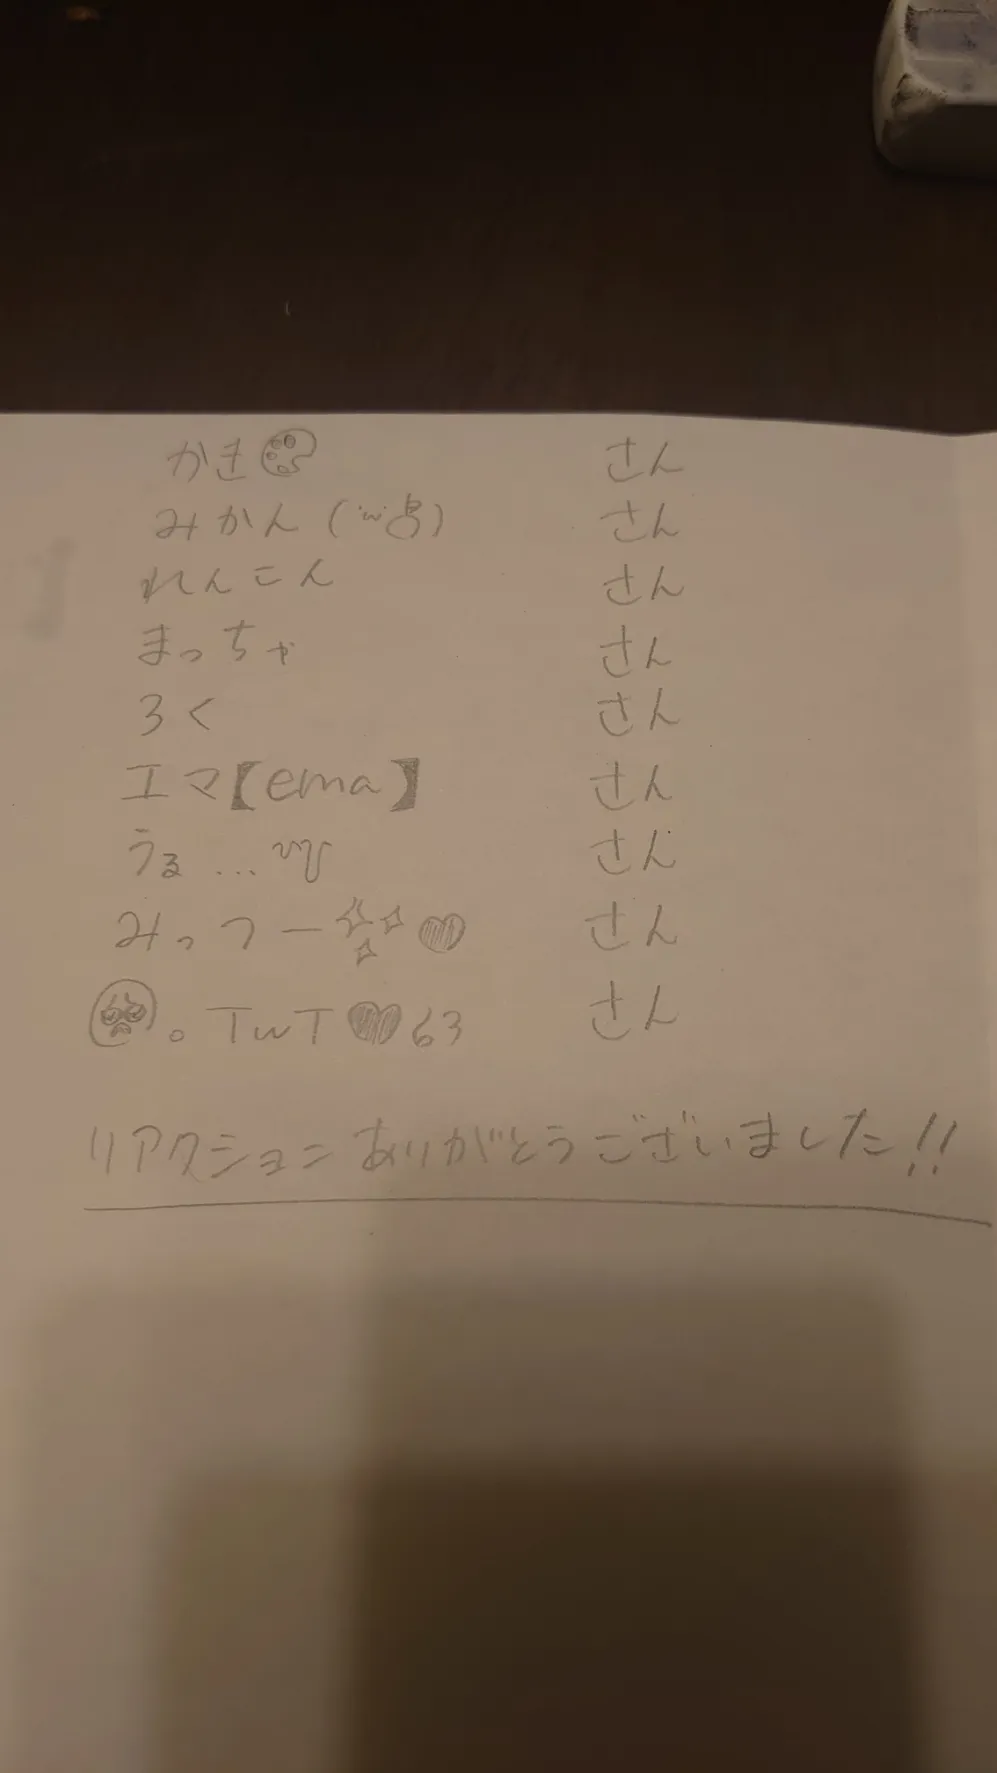 かき🎨 さん
みかん(´ω`) さん
れんこん さん
まっちゃ さん
ろく さん
エマ【ema】 さん
うる… さん
みっつー✨♥ さん
🥺。TwT♥63 さん
リアクションありがとうございました!!